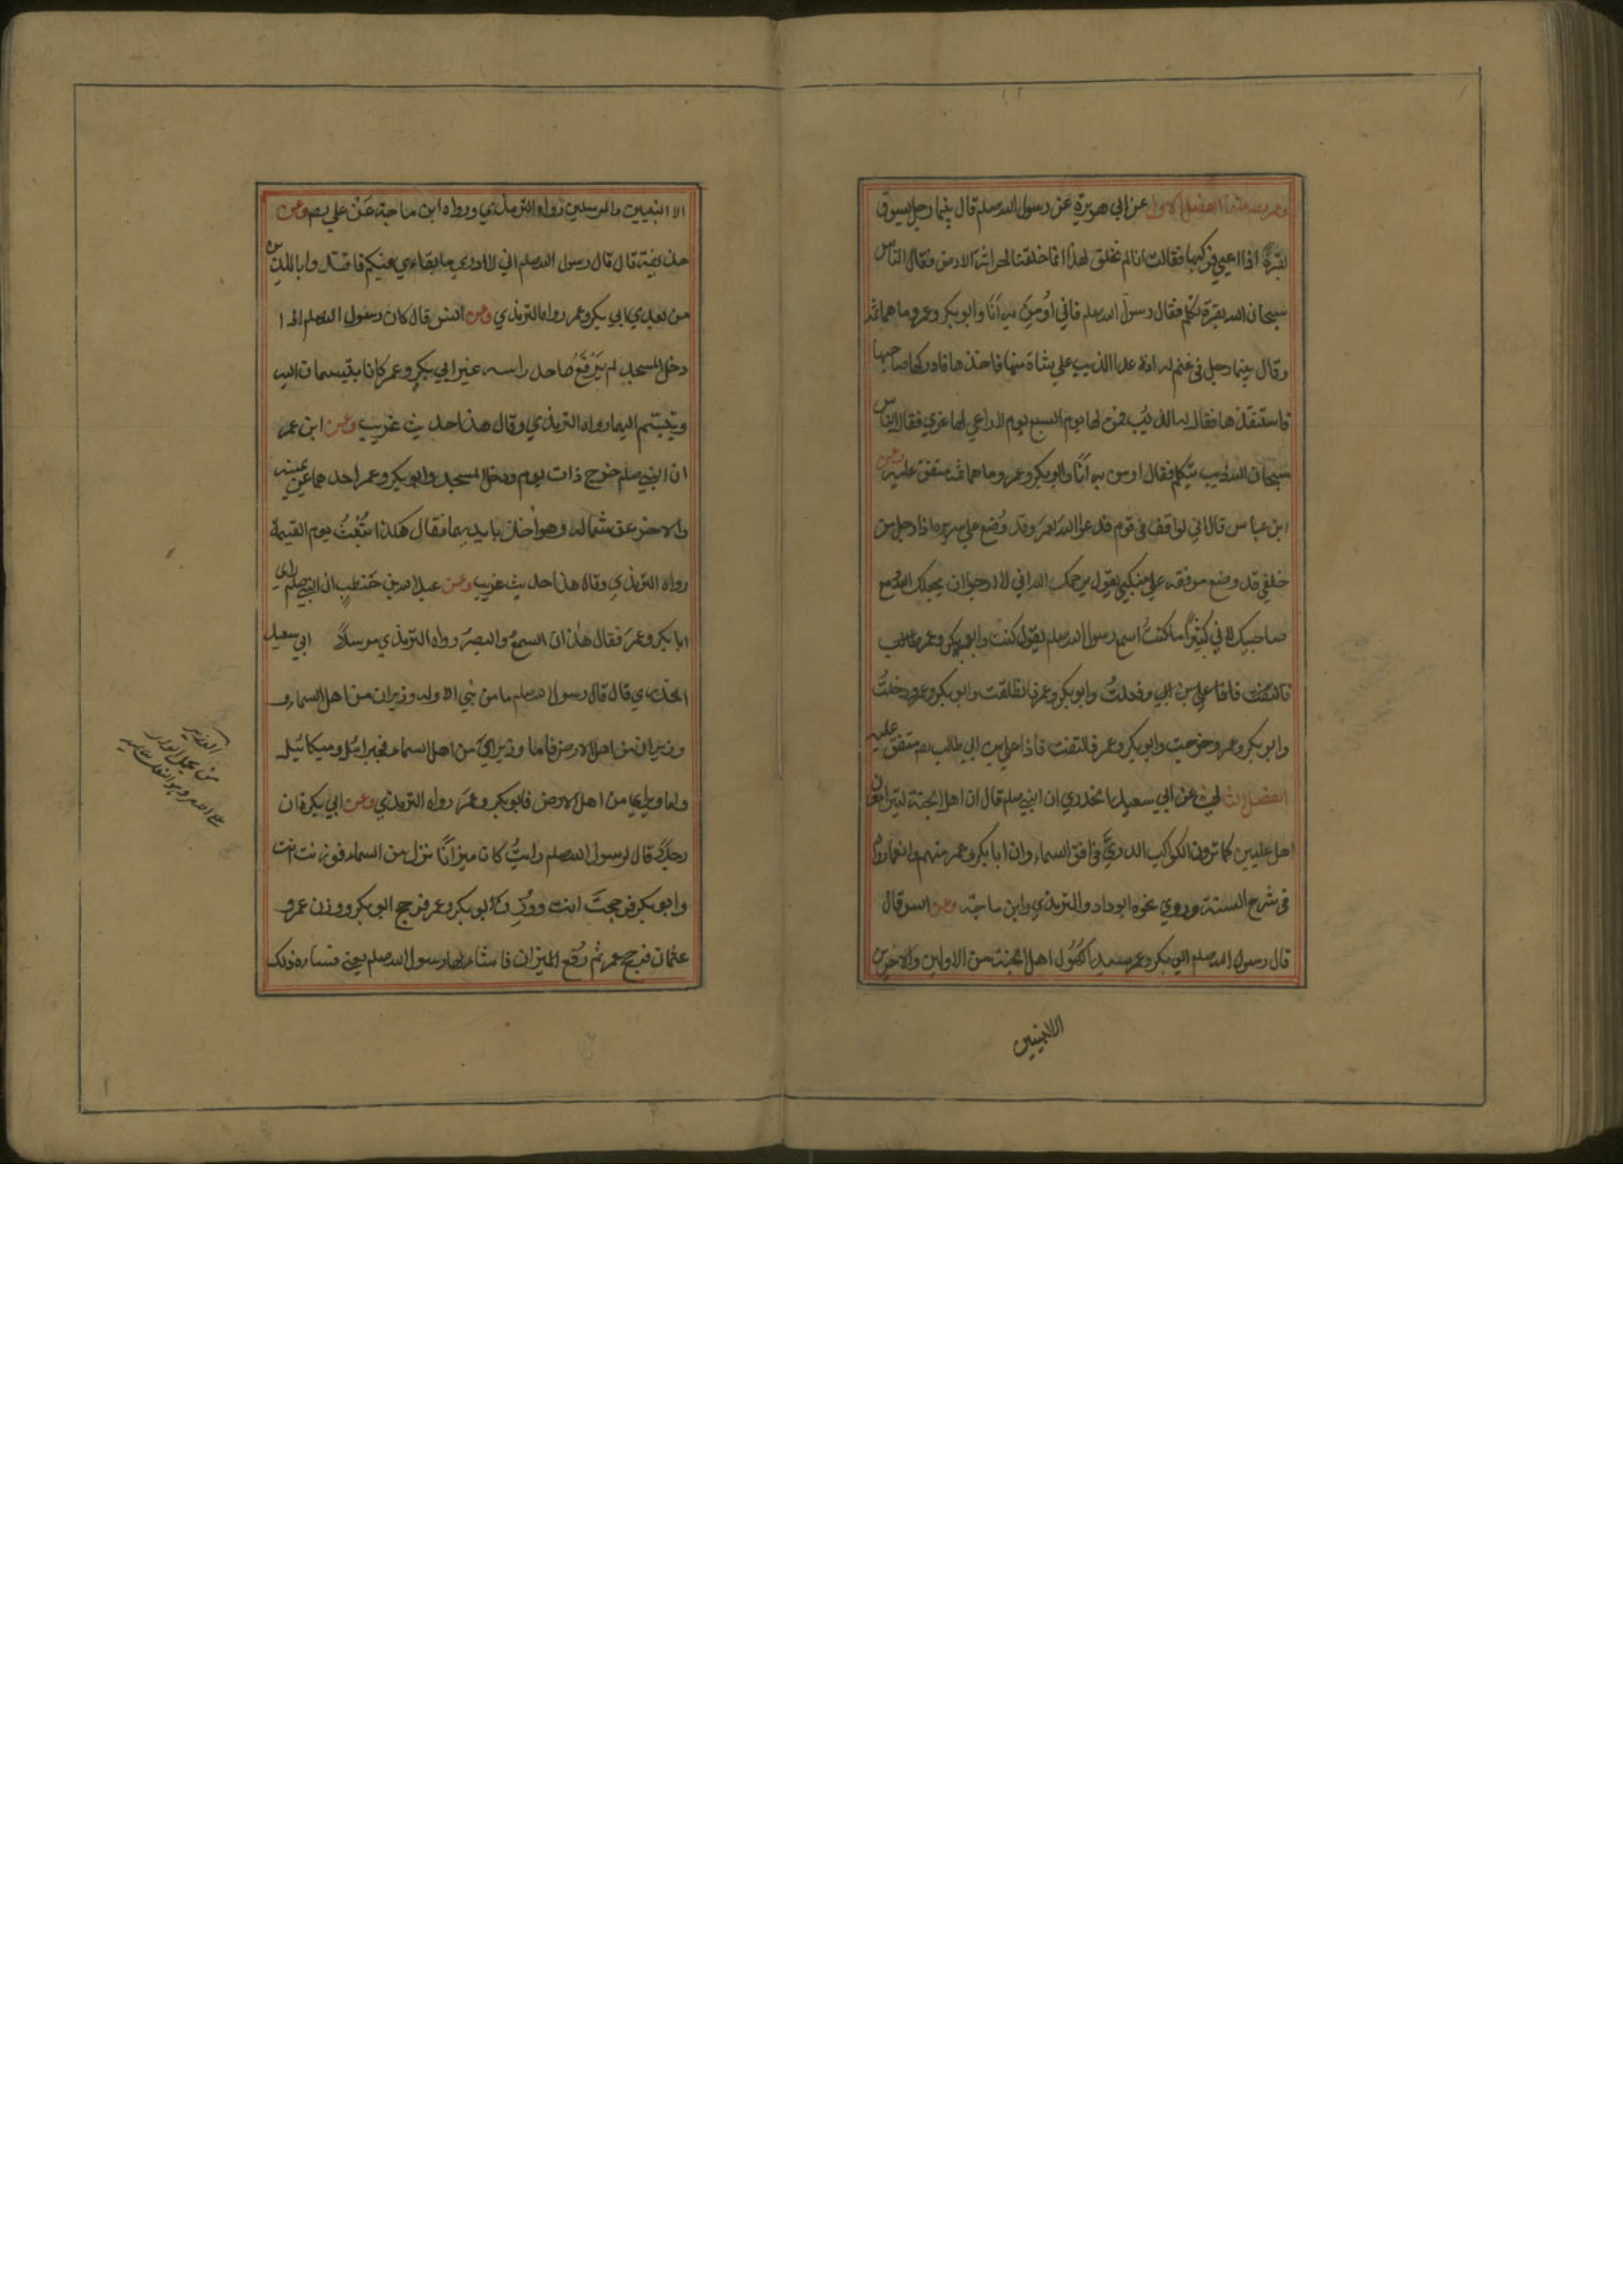 وعمر رضي الله عنهما الفصل الاول عن ابي هريرة عن رسول الله صلعم قال بينما رجل يسوق
بقرة اذا اعيي فركبها فقالت انا لم نخلق لهذا انما خلقنا لحراثة الارض فقال الناس
سبحان الله بقرة تكلم فقال رسول الله صلعم فاني أومن به أنا وابو بكر وعمر وما هما ثم
وقال بينما رجل في غنم له اذ عدا الذيب علي شاة منها فاخذها فادركها صاحبها
فاستنقذها فقال له الذئب فمن لها يوم السبع يوم لا راعي لها غري فقال الناس
سبحان الله ذيب يتكلم فقال اومن به أنا وابو بكر وعمر وما هما ثم متفق عليه وعن
ابن عباس قال اني لواقف في قوم فدعوا الله لعمر وقد وُضع علي سريره اذا رجل من
خلفي قد وضع مرفقه علي منكبي يقول يرحمك الله اني لارجوا ان يجعلك الله مع
صاحبيك لاني كثيراً ما كنتُ اسمع رسول الله صلعم يقول كنت وابو بكر وعمر
وفعلتُ وابو بكر وعمر وانطلقت وابو بكر وعمر ودخلتُ
وابو بكر وعمر وخرجت وابو بكر وعمر فالتفت فاذا علي بن ابي طالب رضه متفق عليه
الفصل الثاني عن ابي سعيد الخدري ان النبي صلعم قال ان اهل الجنة ليتراءون
اهل عليين كما ترون الكواكب الدريَّ في افق السماء وان ابا بكر وعمر منهم وانعما رواه
في شرح السنة وروي نحوه ابو داود والترمذي وابن ماجة وعن انس قال
قال رسول الله صلعم ابو بكر وعمر سيدا كهُول اهل الجنة من الاولين والاخرين
الا النبيين
الا النبيين والمرسلين رواه الترمذي ورواه ابن ماجة عن علي رضه وعن
حذيفة قال قال رسول الله صلعم اني لا ادري ما بقاءي فيكم فاقتدوا بالذين
من بعدي ابي بكر وعمر رواه الترمذي وعن انس قال كان رسول الله صلعم اذا
دخل المسجد لم يَرْفَعُ احد راسه غير ابي بكر وعمر كانا يتبسمان اليه
ويتبسم اليهما رواه الترمذي وقال هذا حديث غريب وعن ابن عمر
ان النبي صلعم خرج ذات يوم ودخل المسجد وابو بكر وعمر احدهما عن يمينه
والاخر عن شماله وهو أخذ بايديهما فقال هكذا نُبْعَثُ يوم القيمة
رواه الترمذي وقال هذا حديث غريب وعن عبد الله بن حَنطب ان النبي صلعم راي
ابا بكر وعمر فقال هذان السمعُ والبصرُ رواه الترمذي مرسلاً ابي سعيد
الخدري قال قال رسول الله صلعم ما من نبي الا وله وزيران من اهل السماء و
وزيران من اهل الارض فاما وزيرايَ من اهل السماء فجبرائيل وميكائيل
واما وزيراي من اهل الارض فابو بكر وعمر رواه الترمذي وعن ابي بكرة ان
رجلاً قال لرسول الله صلعم رايتُ كان ميزاناً نزل من السماء فوزنت انت
وابو بكر فرجحتَ انت ووُزِنَ ابو بكر وعمر فرجح ابو بكر ووزن عمر و
عثمان فرجح عمر ثم رُفع الميزان فاستاء لها رسول الله صلعم يعني فساءه ذلك
الوزير
من يحمل الوزر